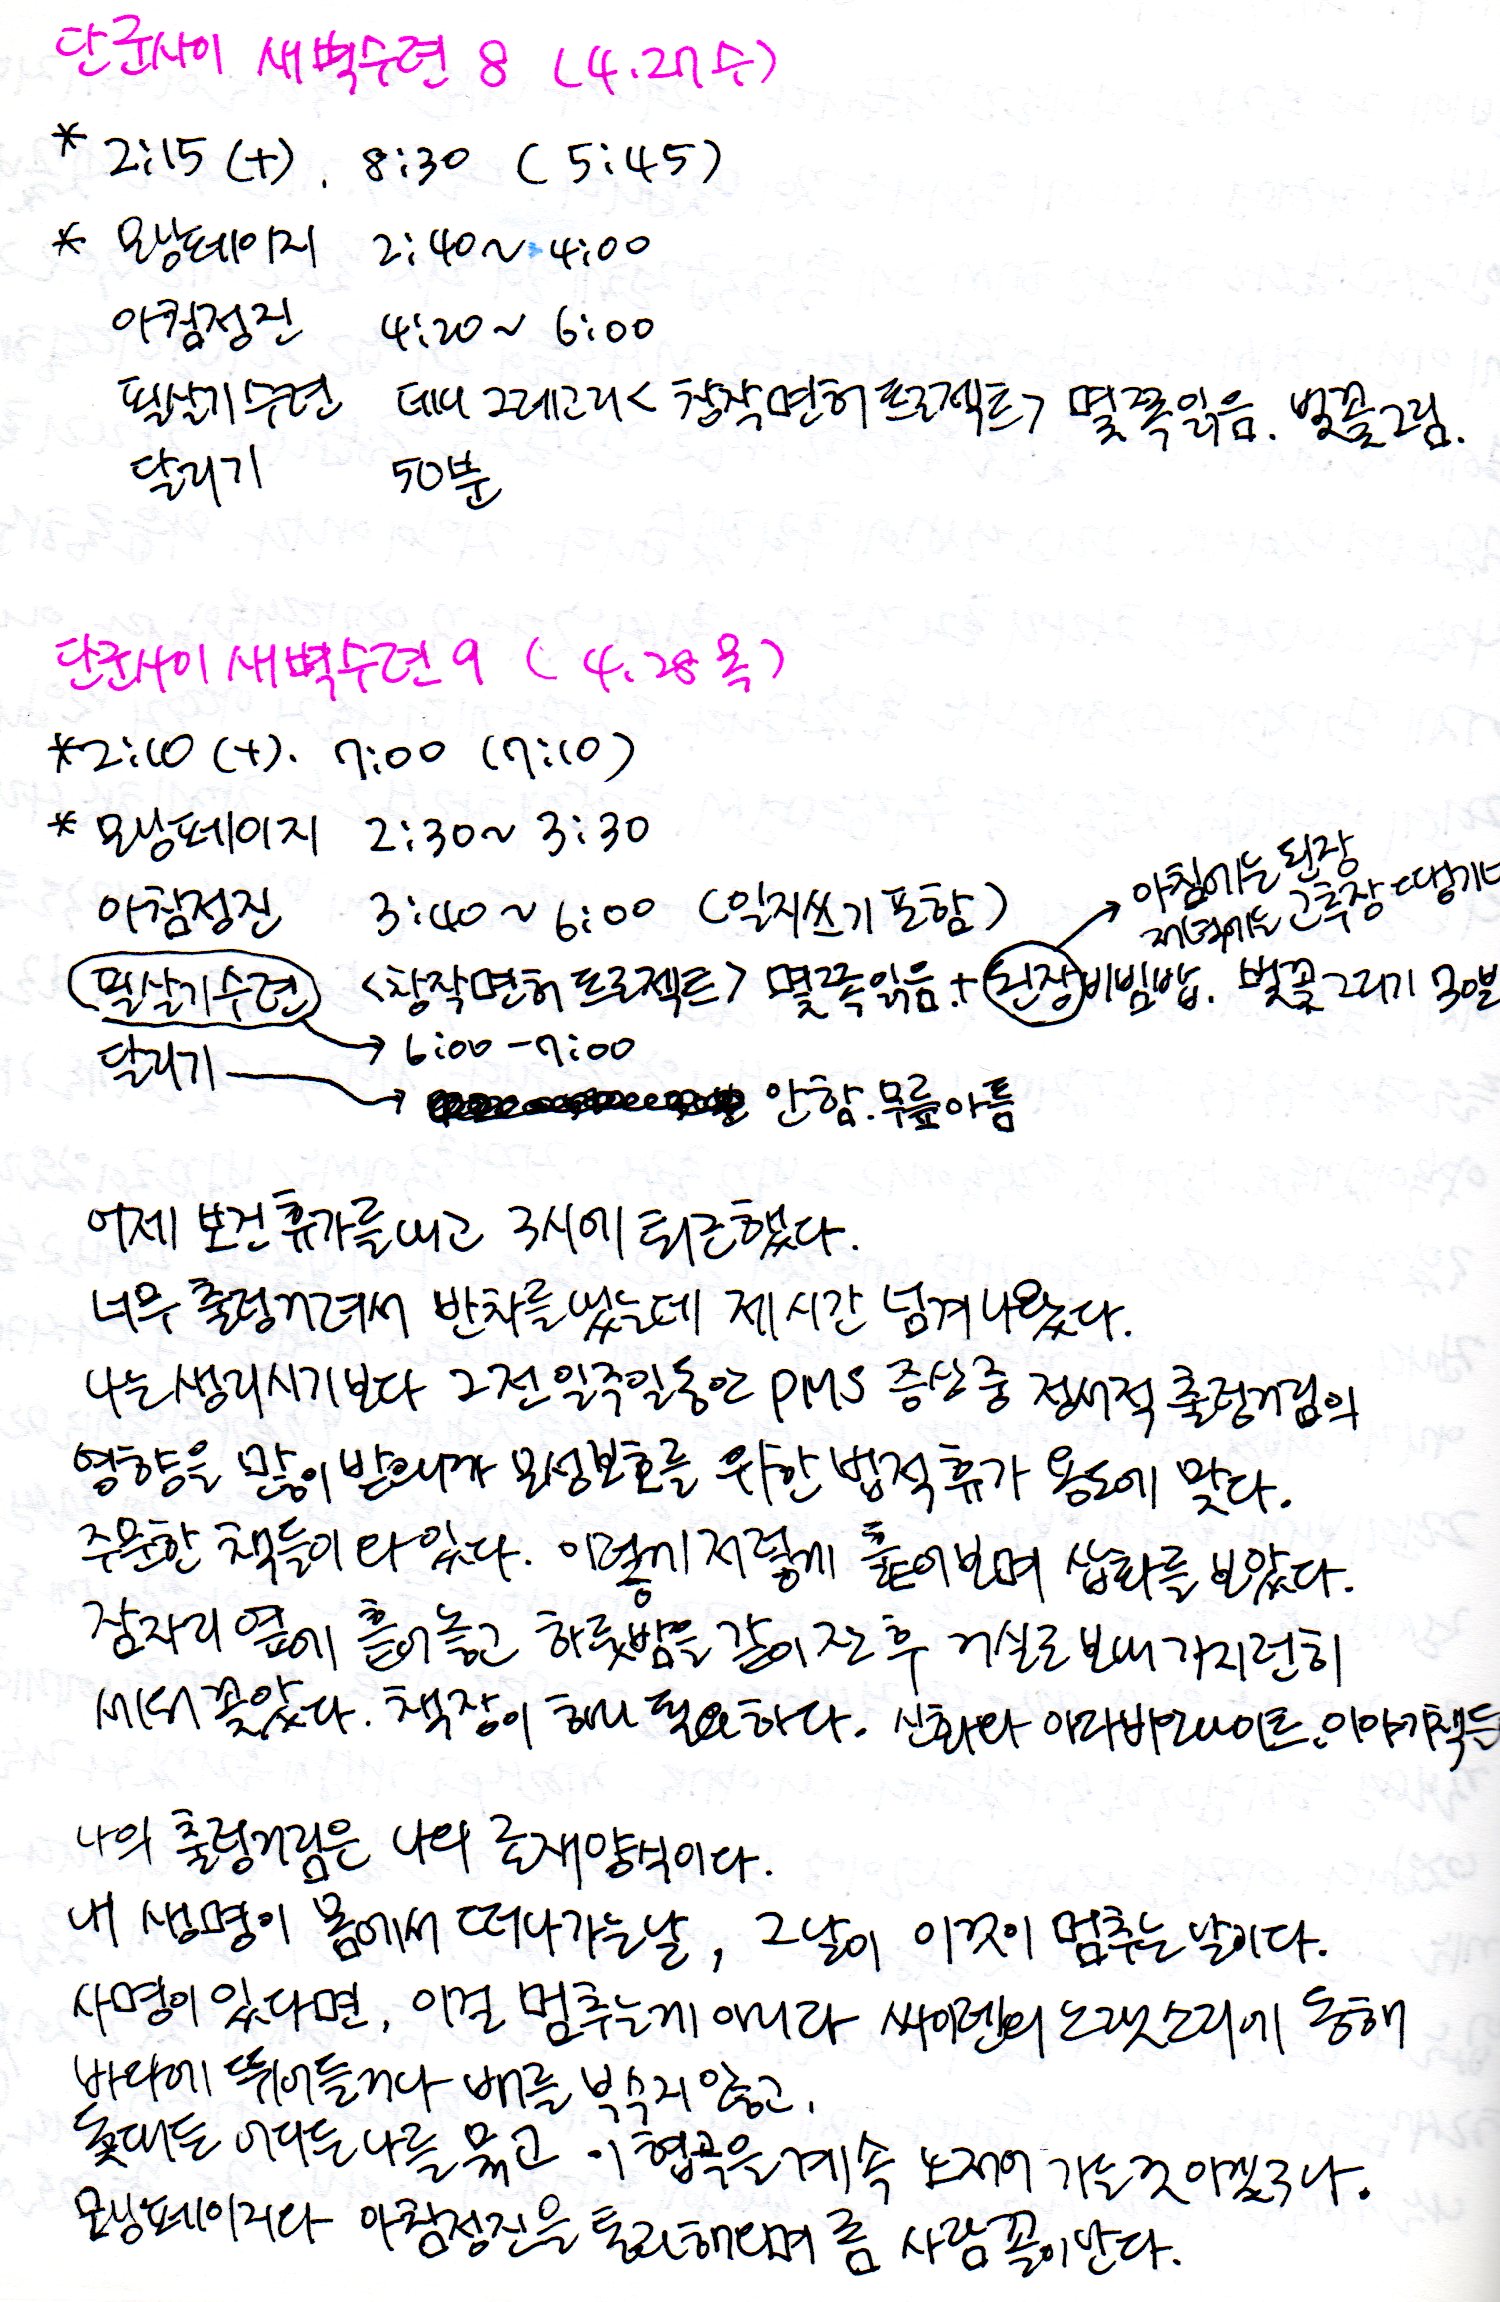 단군사이 새벽수련 8 (4.27수)
* 2:15 (+). 8:30 (5:45)
* 모닝페이지 2:40~4:00
아침정진 4:20~6:00
필살기수련 대니 그레고리<창작면허프로젝트> 몇쪽읽음. 벚꽃그림.
달리기 50분
단군사이 새벽수련 9 (4.28 목)
*2:10 (+). 7:00 (7:10)
* 모닝페이지 2:30~3:30
아침에는 된장
저녁에는 고추장 땡기너
아침정진 3:40~6:00 (일지쓰기 포함)
필살기수련 <창작면허프로젝트> 몇쪽읽음.+ 된장비빔밥. 벚꽃그리기 30분
달리기 → 6:00-7:00
→ 안함. 무릎아픔
어제 보건휴가를 내고 3시에 퇴근했다.
너무 출렁거려서 반차를 냈는데 제시간 넘겨 나왔다.
나는 생리시기보다 그전 일주일동안 PMS 증상중 정서적 출렁거림의
영향을 많이 받으니까 모성보호를 위한 법적휴가 용도에 맞다.
주문한 책들이 와있다. 이렇게 저렇게 훑어보며 삽화를 보았다.
잠자리 옆에 흩어놓고 하룻밤을 같이 잔 후 거실로 보내 가지런히
세워 꽂았다. 책장이 하나 필요하다. 신화와 아라비안나이트. 이야기책들
나의 출렁거림은 나의 존재양식이다.
내 생명이 몸에서 떠나가는 날, 그날이 이것이 멈추는 날이다.
사명이 있다면, 이걸 멈추는게 아니라 싸이렌의 노랫소리에 동해
바다에 뛰어들거나 배를 부수지 않고,
돛대든 어디든 나를 묶고 이 협곡을 계속 노저어 가는것 아닐까나.
모닝페이지와 아침정진을 통과해오며 좀 사람꼴이 난다.